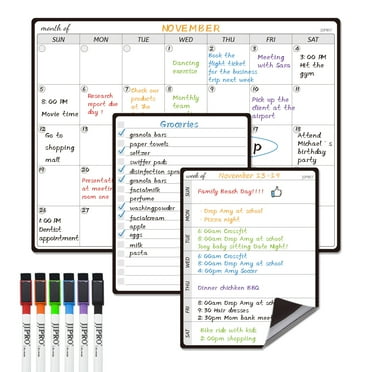 month of NOVEMBER
SUN MON TUE WED THU FRI SAT
1 2 3 4
Dancing exercise
Book the flight ticket for the business trip next week
Meeting with Sara
3:00 PM Hit the gym
5 6 7 8 10
8:00 PM Movie time
Research report due day!
Check our products at the
Monthly team
Pick up the client at the airport
12 Go to shopping mall
17 18
Attend Michael's birthday party
19 20
Presentat at meeting room one
26
1:00 PM Dentist appointment
Groceries
granola bars
paper towels
seltzer
swiffer pads
disinfection spra
granola bars
facialmilk
perfume
washingpowder
facialcream
apple
eggs
milk
pasta
week of November 13-19
SUN Family Beach Day!!!!
MON Drop Amy at school
Pizza night
TUE 8:00am Crossfit
8:00am Drop Amy at school
Joey baby sitting Date Night!
WED 8:00am Crossfit
4:00pm Amy Soccer
THU Dinner chicken BBQ
FRI 8:00am Drop Amy at sc
9:30 Hair dresses
2:30pm Mom bank mee
SAT Bike ride with kids
2:00pm shopping
JJPRO
JJPRO
JJPRO
JJPRO
JJPRO
JJPRO